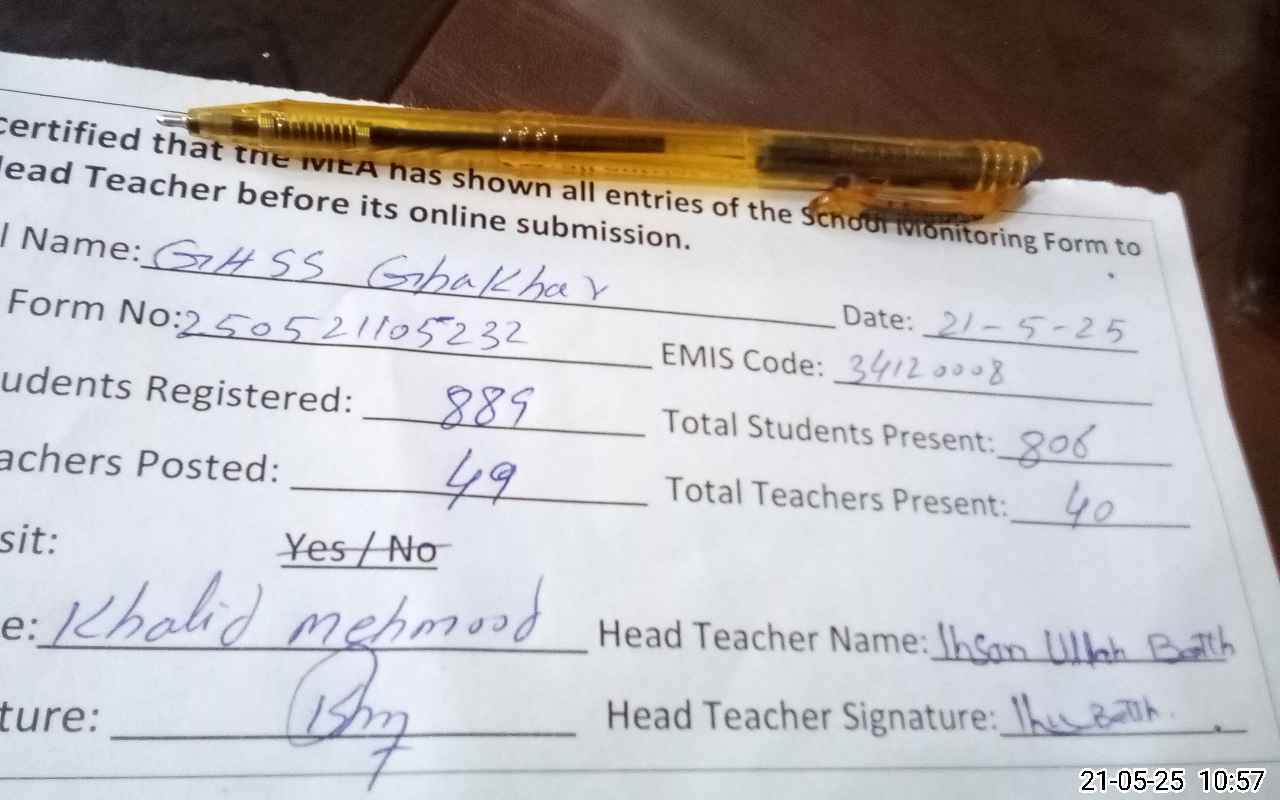 certified that the MEA has shown all entries of the School Monitoring Form to
Head Teacher before its online submission.
l Name: GHSS Ghakhar
Date: 21-5-25
Form No: 250521105232
EMIS Code: 34120008
udents Registered: 889
Total Students Present: 806
achers Posted: 49
Total Teachers Present: 40
sit: Yes / No
e: Khalid mehmood
Head Teacher Name: Ihsan Ullah Batth
ture:
Head Teacher Signature: Batth.
21-05-25 10:57